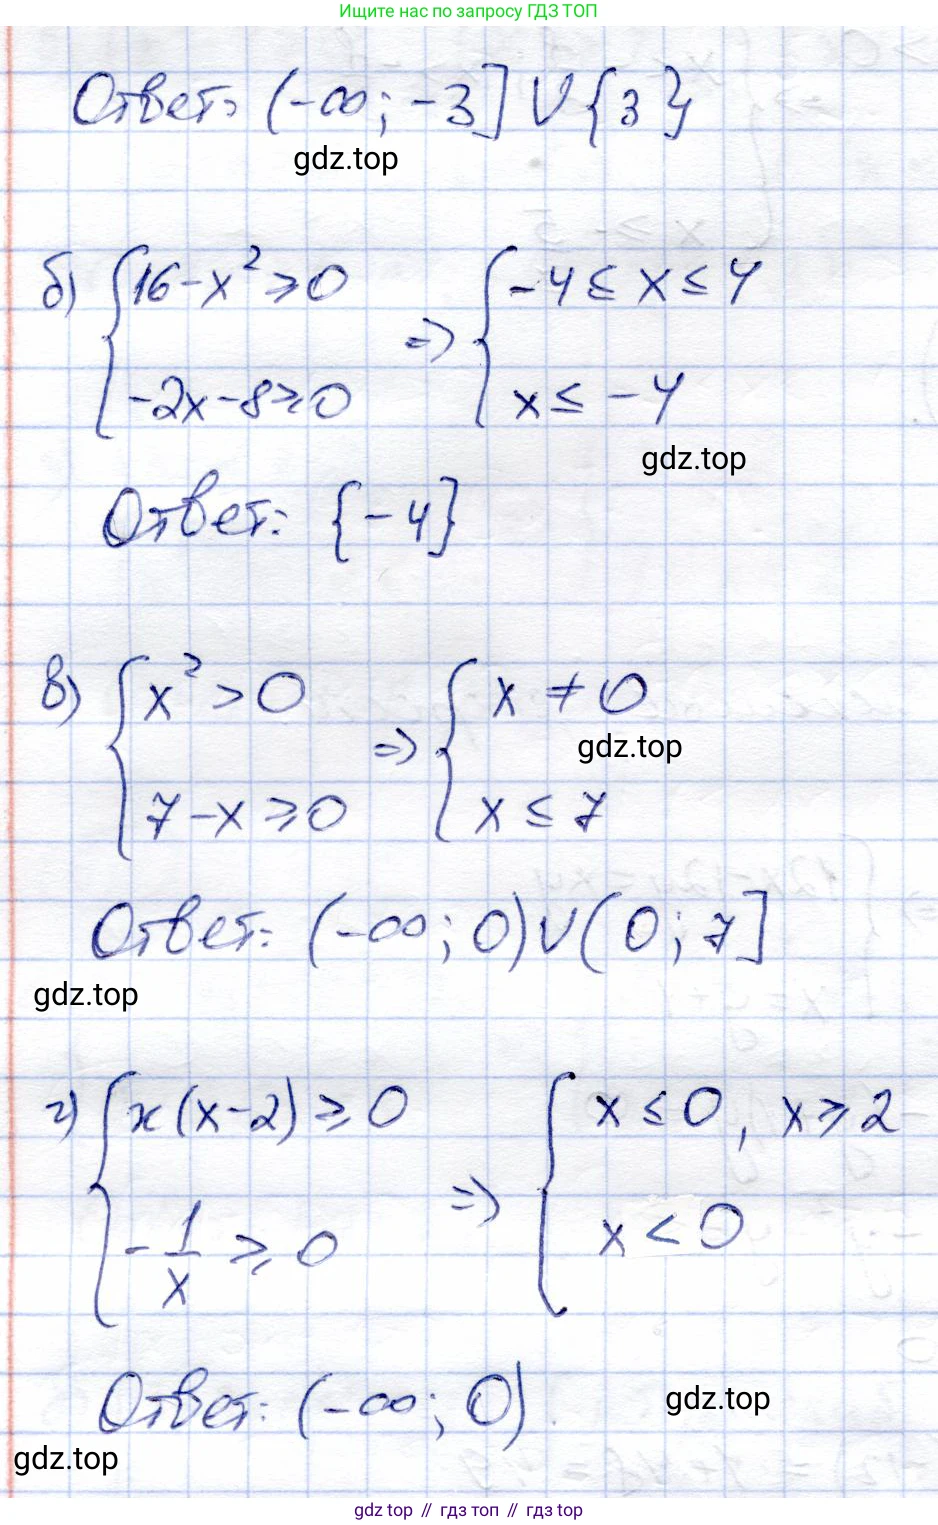 Ищите нас по запросу ГДЗ ТОП
Ответ: (-∞; -3] ∪ {3}
gdz.top
б) { 16 - x² ≥ 0 => { -4 ≤ x ≤ 4
-2x - 8 ≥ 0 x ≤ -4
gdz.top
Ответ: {-4}
в) { x² > 0 => { x ≠ 0
gdz.top
7 - x ≥ 0 x ≤ 7
Ответ: (-∞; 0) ∪ (0; 7]
gdz.top
г) { x(x-2) ≥ 0 => { x ≤ 0, x ≥ 2
-1/x ≥ 0 x < 0
Ответ: (-∞; 0)
gdz.top
gdz.top
gdz top // гдз топ // гдз top